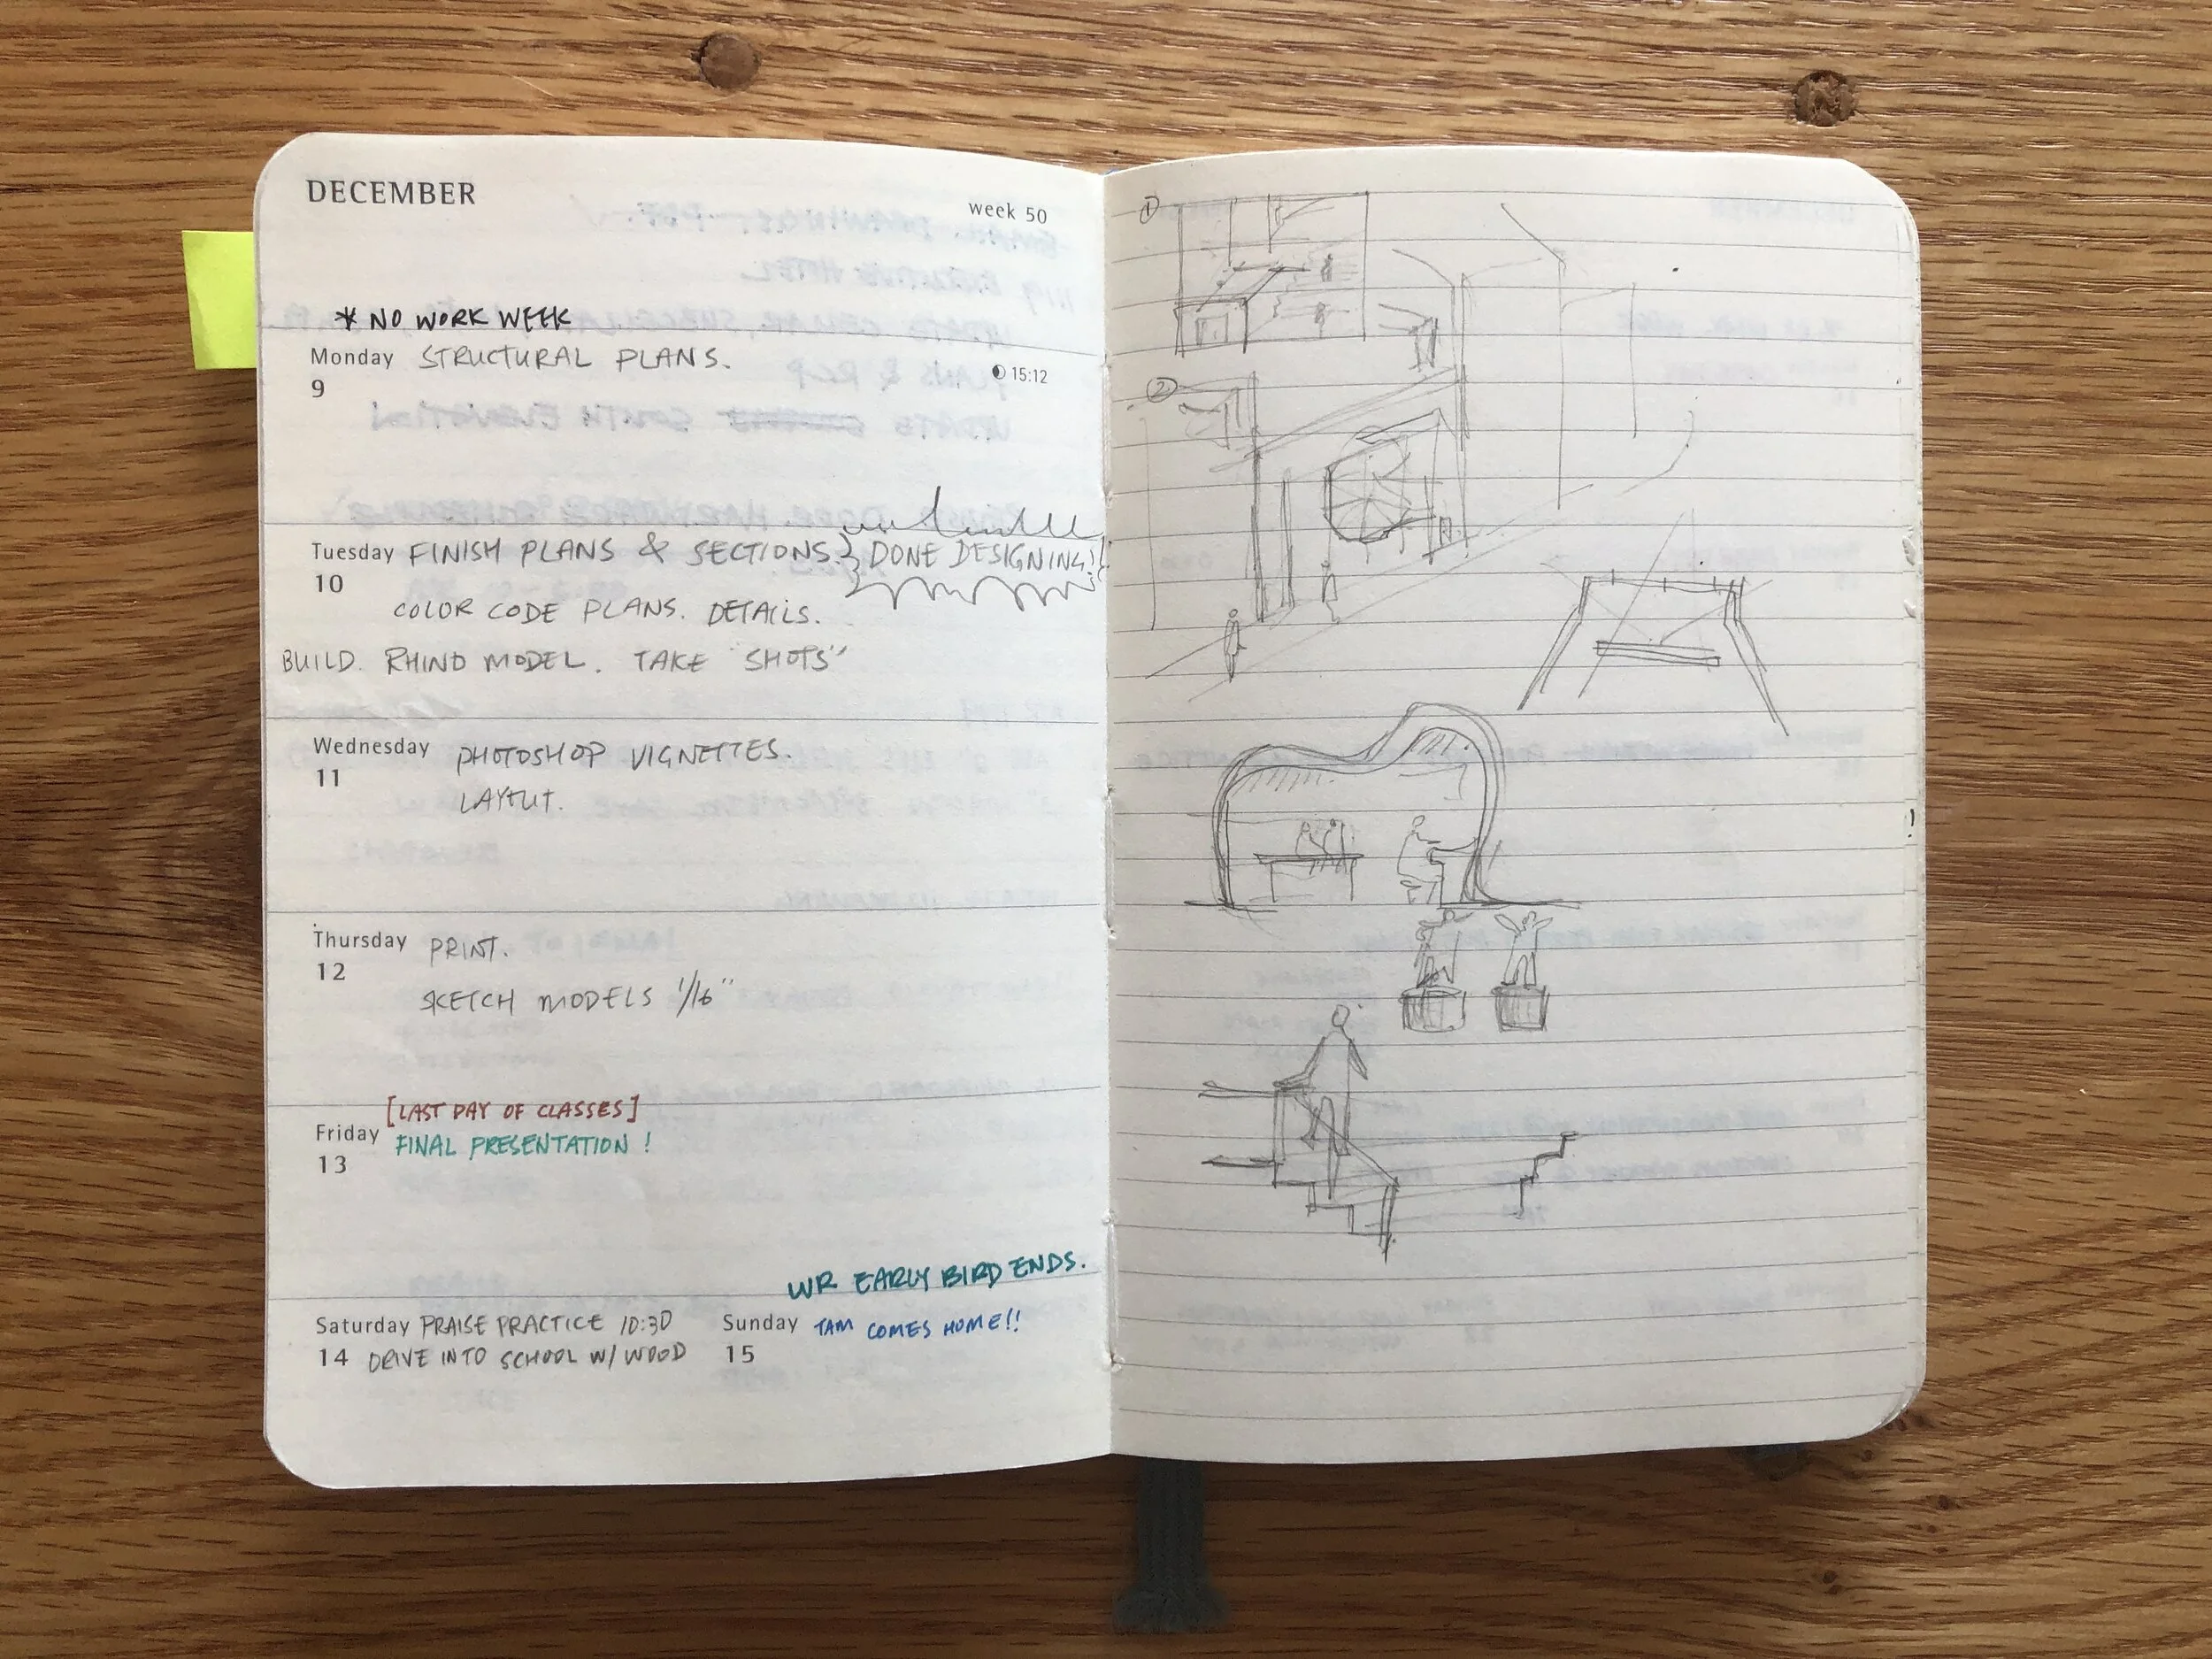 DECEMBER
week 50
* NO WORK WEEK
Monday STRUCTURAL PLANS.
9
15:12
Tuesday FINISH PLANS & SECTIONS. DONE DESIGNING!
10
COLOR CODE PLANS. DETAILS.
BUILD. RHINO MODEL. TAKE "SHOTS"
Wednesday PHOTOSHOP VIGNETTES.
11
LAYOUT.
Thursday PRINT.
12
SKETCH MODELS 1/16"
[LAST DAY OF CLASSES]
Friday FINAL PRESENTATION!
13
WR EARLY BIRD ENDS.
Saturday PRAISE PRACTICE 10:30
14 DRIVE INTO SCHOOL W/ WOOD
Sunday TAM COMES HOME!!
15
①
②